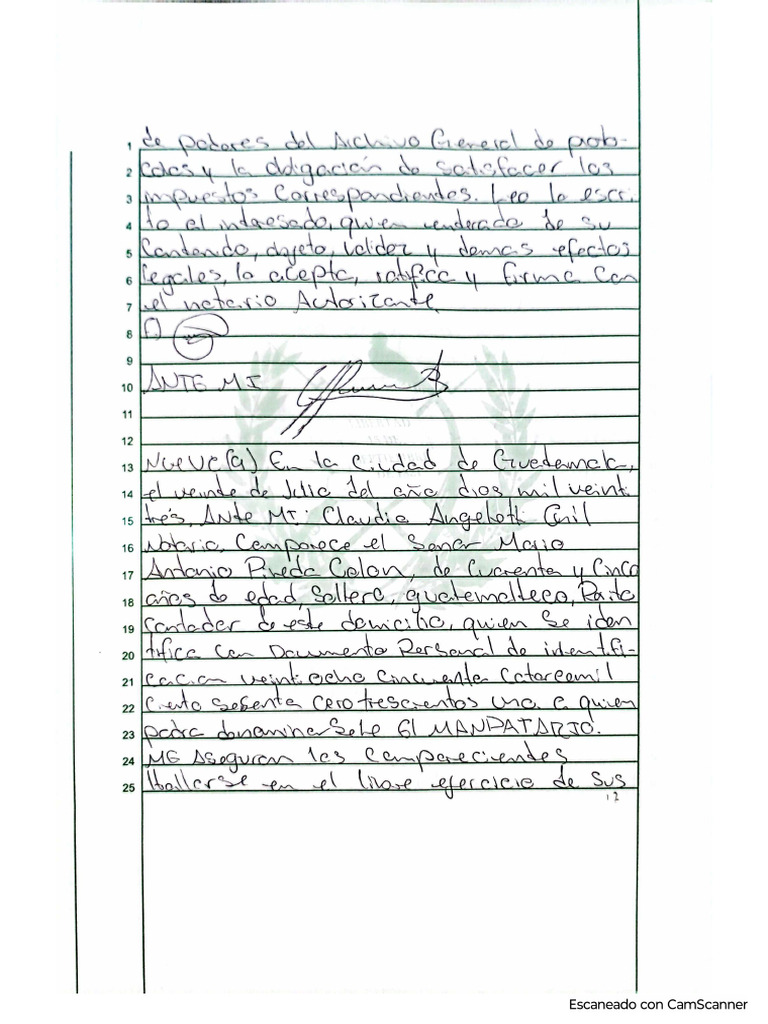 1 de poderes del Archivo General de proto-
2 colos y la obligación de satisfacer los
3 impuestos correspondientes. Leo lo escri-
4 to al interesado, quien enterado de su
5 contenido, objeto, validez y demas efectos
6 legales, lo acepta, ratifica y firma con
7 el notario Autorizante.
8 f)
9
10 ANTE MI
11
12
13 NUEVE (9) En la ciudad de Guatemala,
14 el veinte de Julio del año dios mil veinti
15 trés, ANTE MI: Claudia Angeloti
16 Notario, Comparece el Señor Mario
17 Antonio Pineda Colon, de cuarenta y cinco
18 años de edad, Soltero, guatemalteco, Perito
19 contador de este domicilio, quien se iden
20 tifica con Documento Personal de identifi-
21 cacion veintiocho cincuenta catorcemil
22 ciento sesenta cero trescientos uno. a quien
23 podra denominarsele El MANDATARIO.
24 ME Aseguran los comparecientes
25 Hallarse en el libre ejercicio de sus
Escaneado con CamScanner